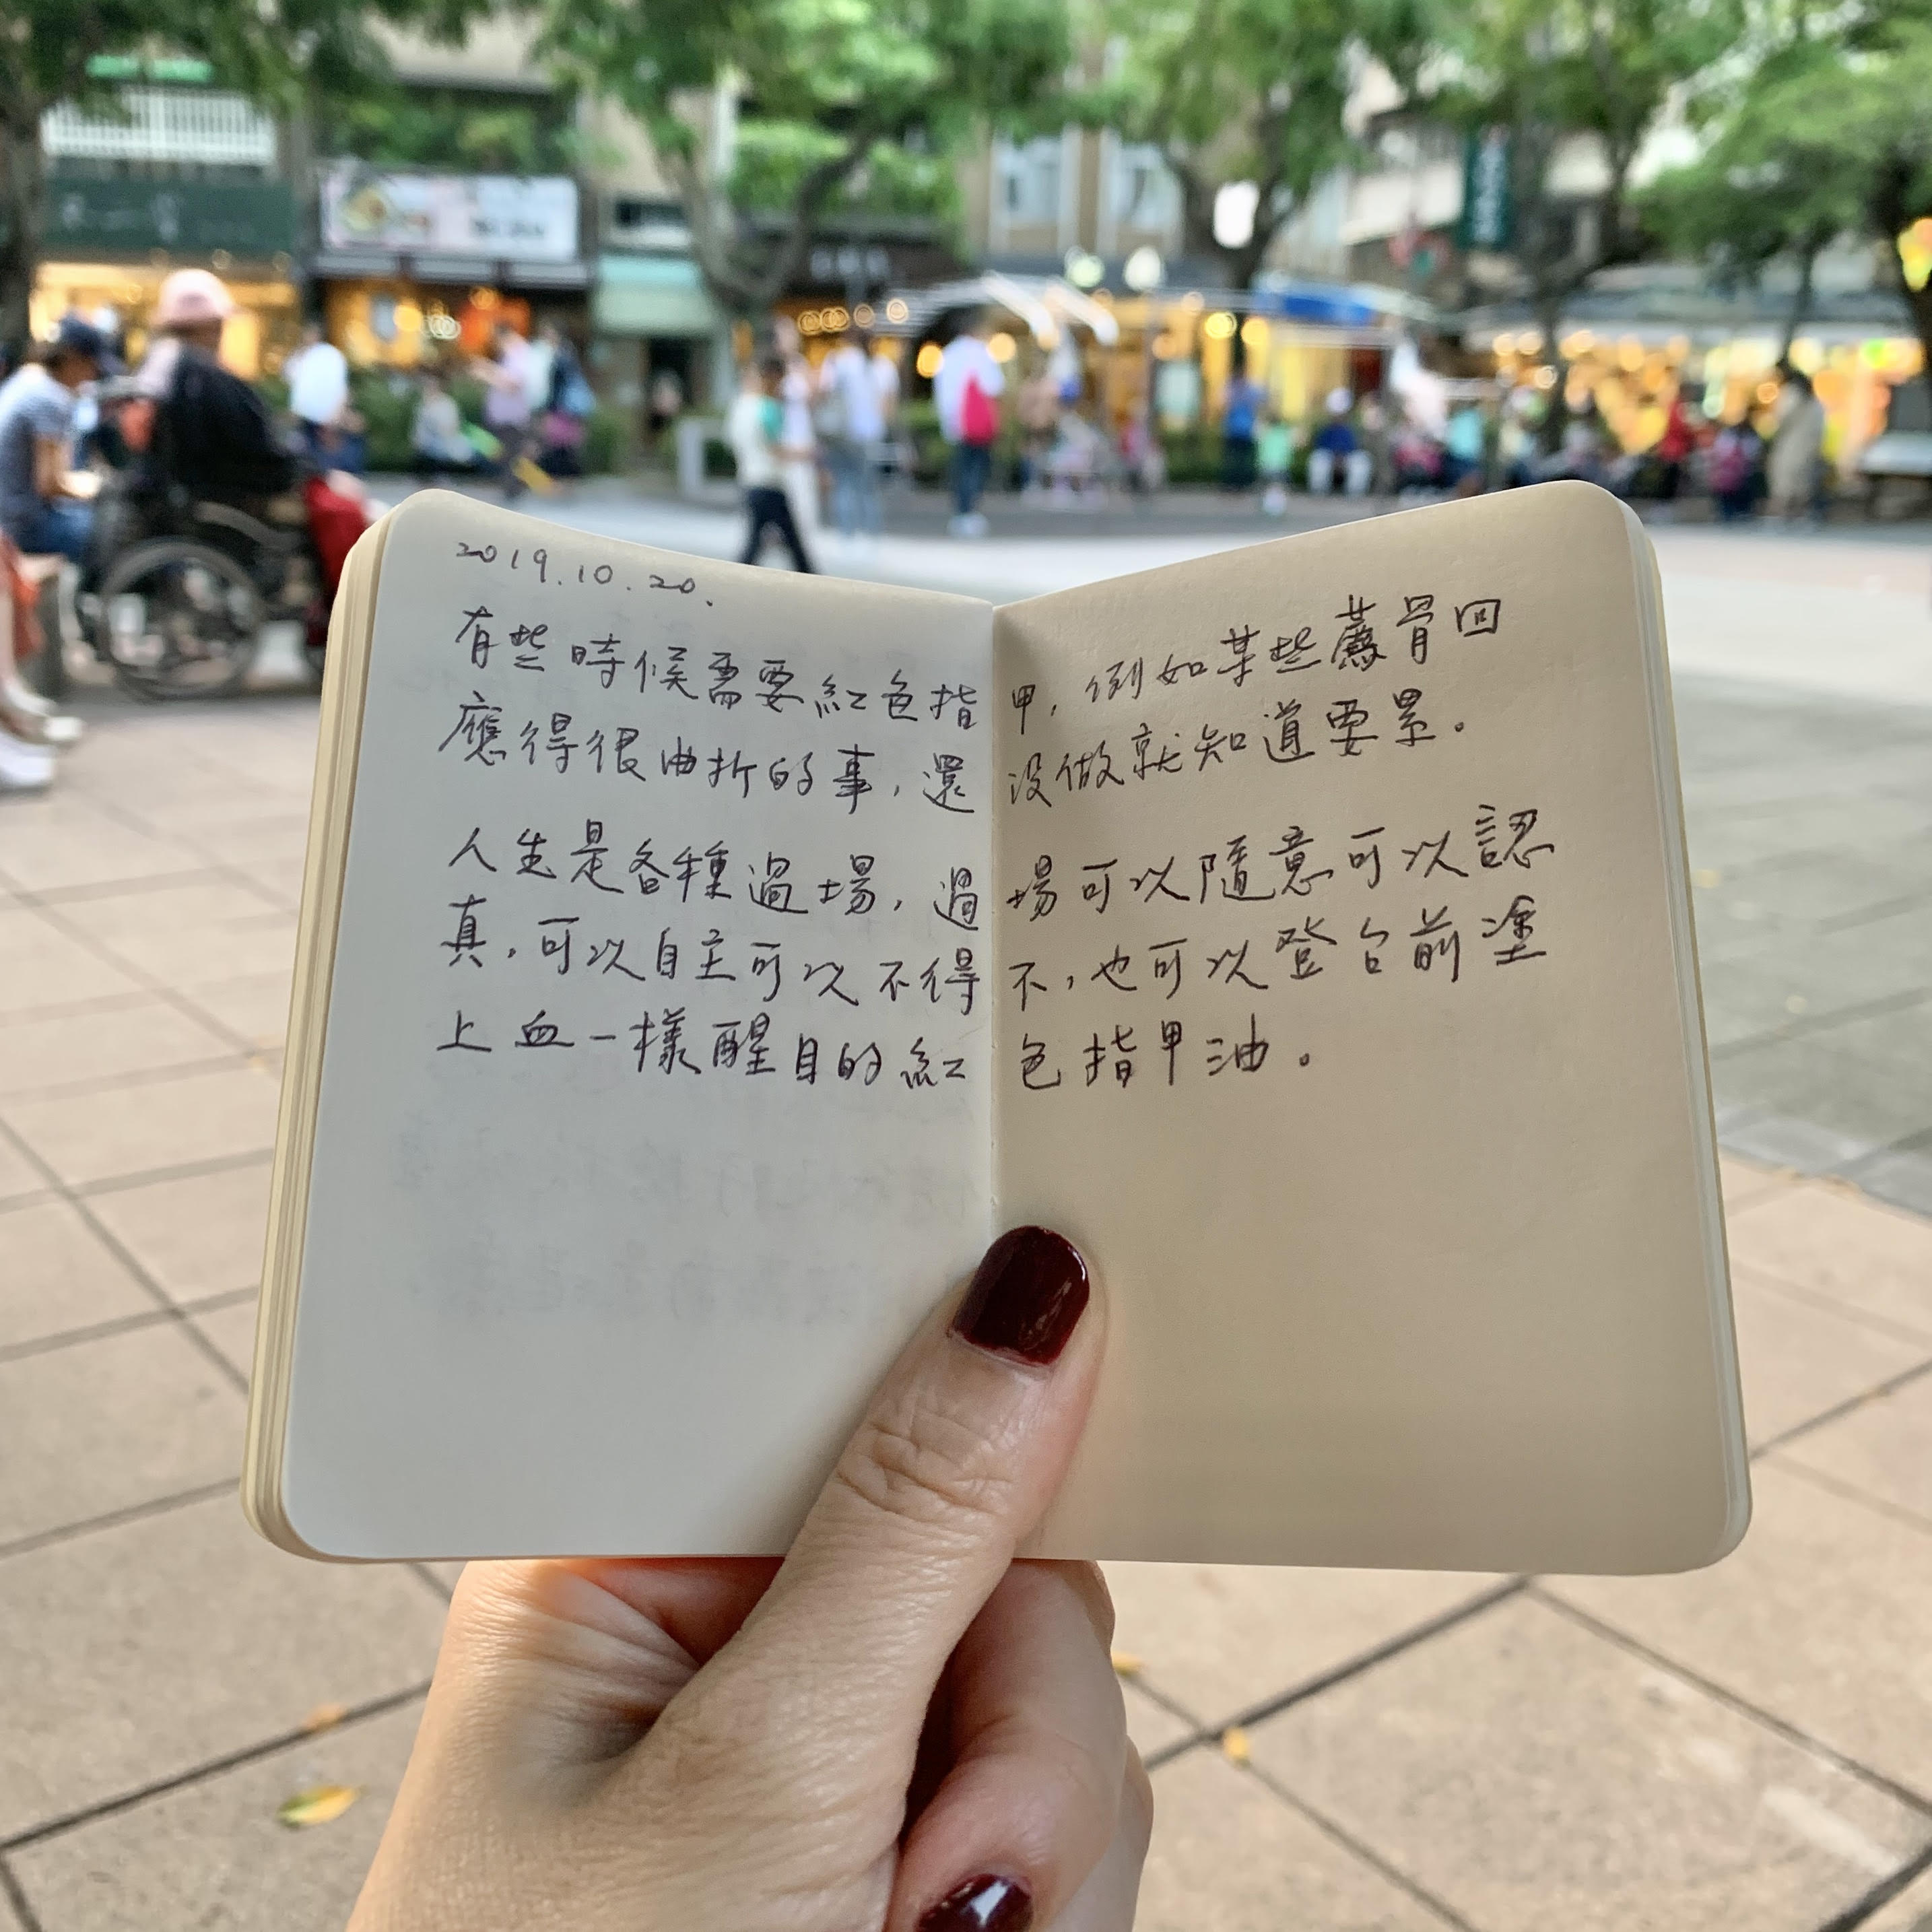 2019.10.20.
有些時候需要紅色指甲,例如某些薦骨回
應得很曲折的事,還沒做就知道要累。
人生是各種過場,過場可以隨意可以認
真,可以自主可以不得不,也可以登台前塗
上血一樣醒目的紅色指甲油。